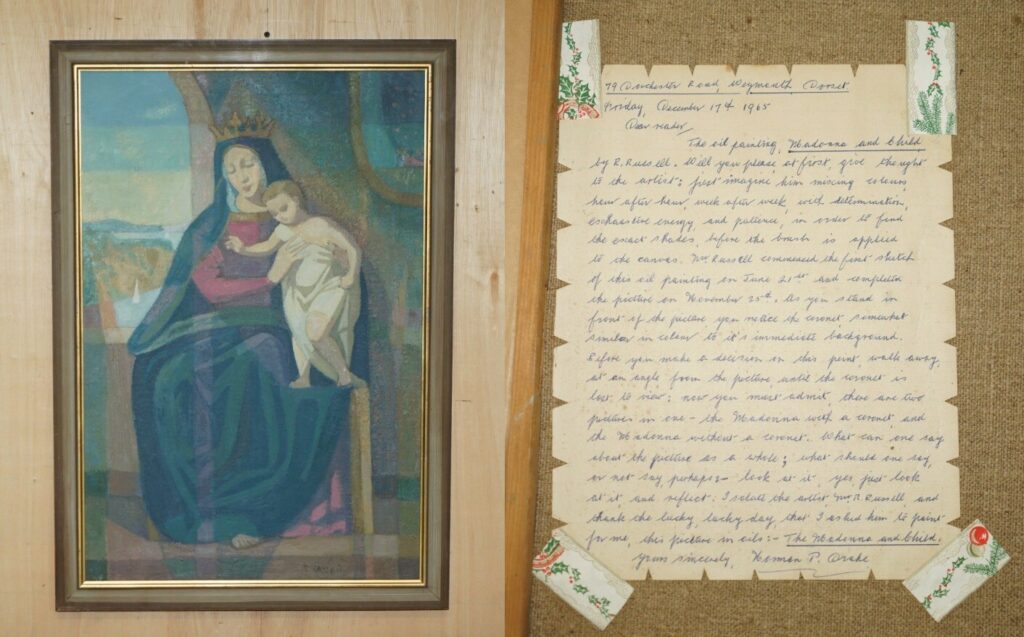 79 Dorchester Road, Weymouth, Dorset.
Friday, December 17th 1965
Dear reader,
The oil painting, Madonna and Child
by R. Russell. Will you please, at first, give the right
to the artist: first imagine him mixing colours
hour after hour, week after week, with determination,
exhaustive energy, and patience, in order to find
the exact shades, before the brush is applied
to the canvas. Mr Russell commenced the first sketch
of this oil painting on June 21st and completed
the picture on November 25th. As you stand in
front of the picture you notice the coronet somewhat
similar in colour to it's immediate background.
Before you make a decision on this point, walk away,
at an angle from the picture until the coronet is
lost to view: now you must admit, there are two
pictures in one - the Madonna with a coronet and
the Madonna without a coronet. What can one say
about the picture as a whole; what should one say,
or not say, perhaps:- look at it, yes, just look
at it and reflect: I salute the artist Mr R. Russell and
thank the lucky, lucky day, that I asked him to paint
for me, this picture in oils:- The Madonna and Child.
Yours sincerely, Herman P. Drake